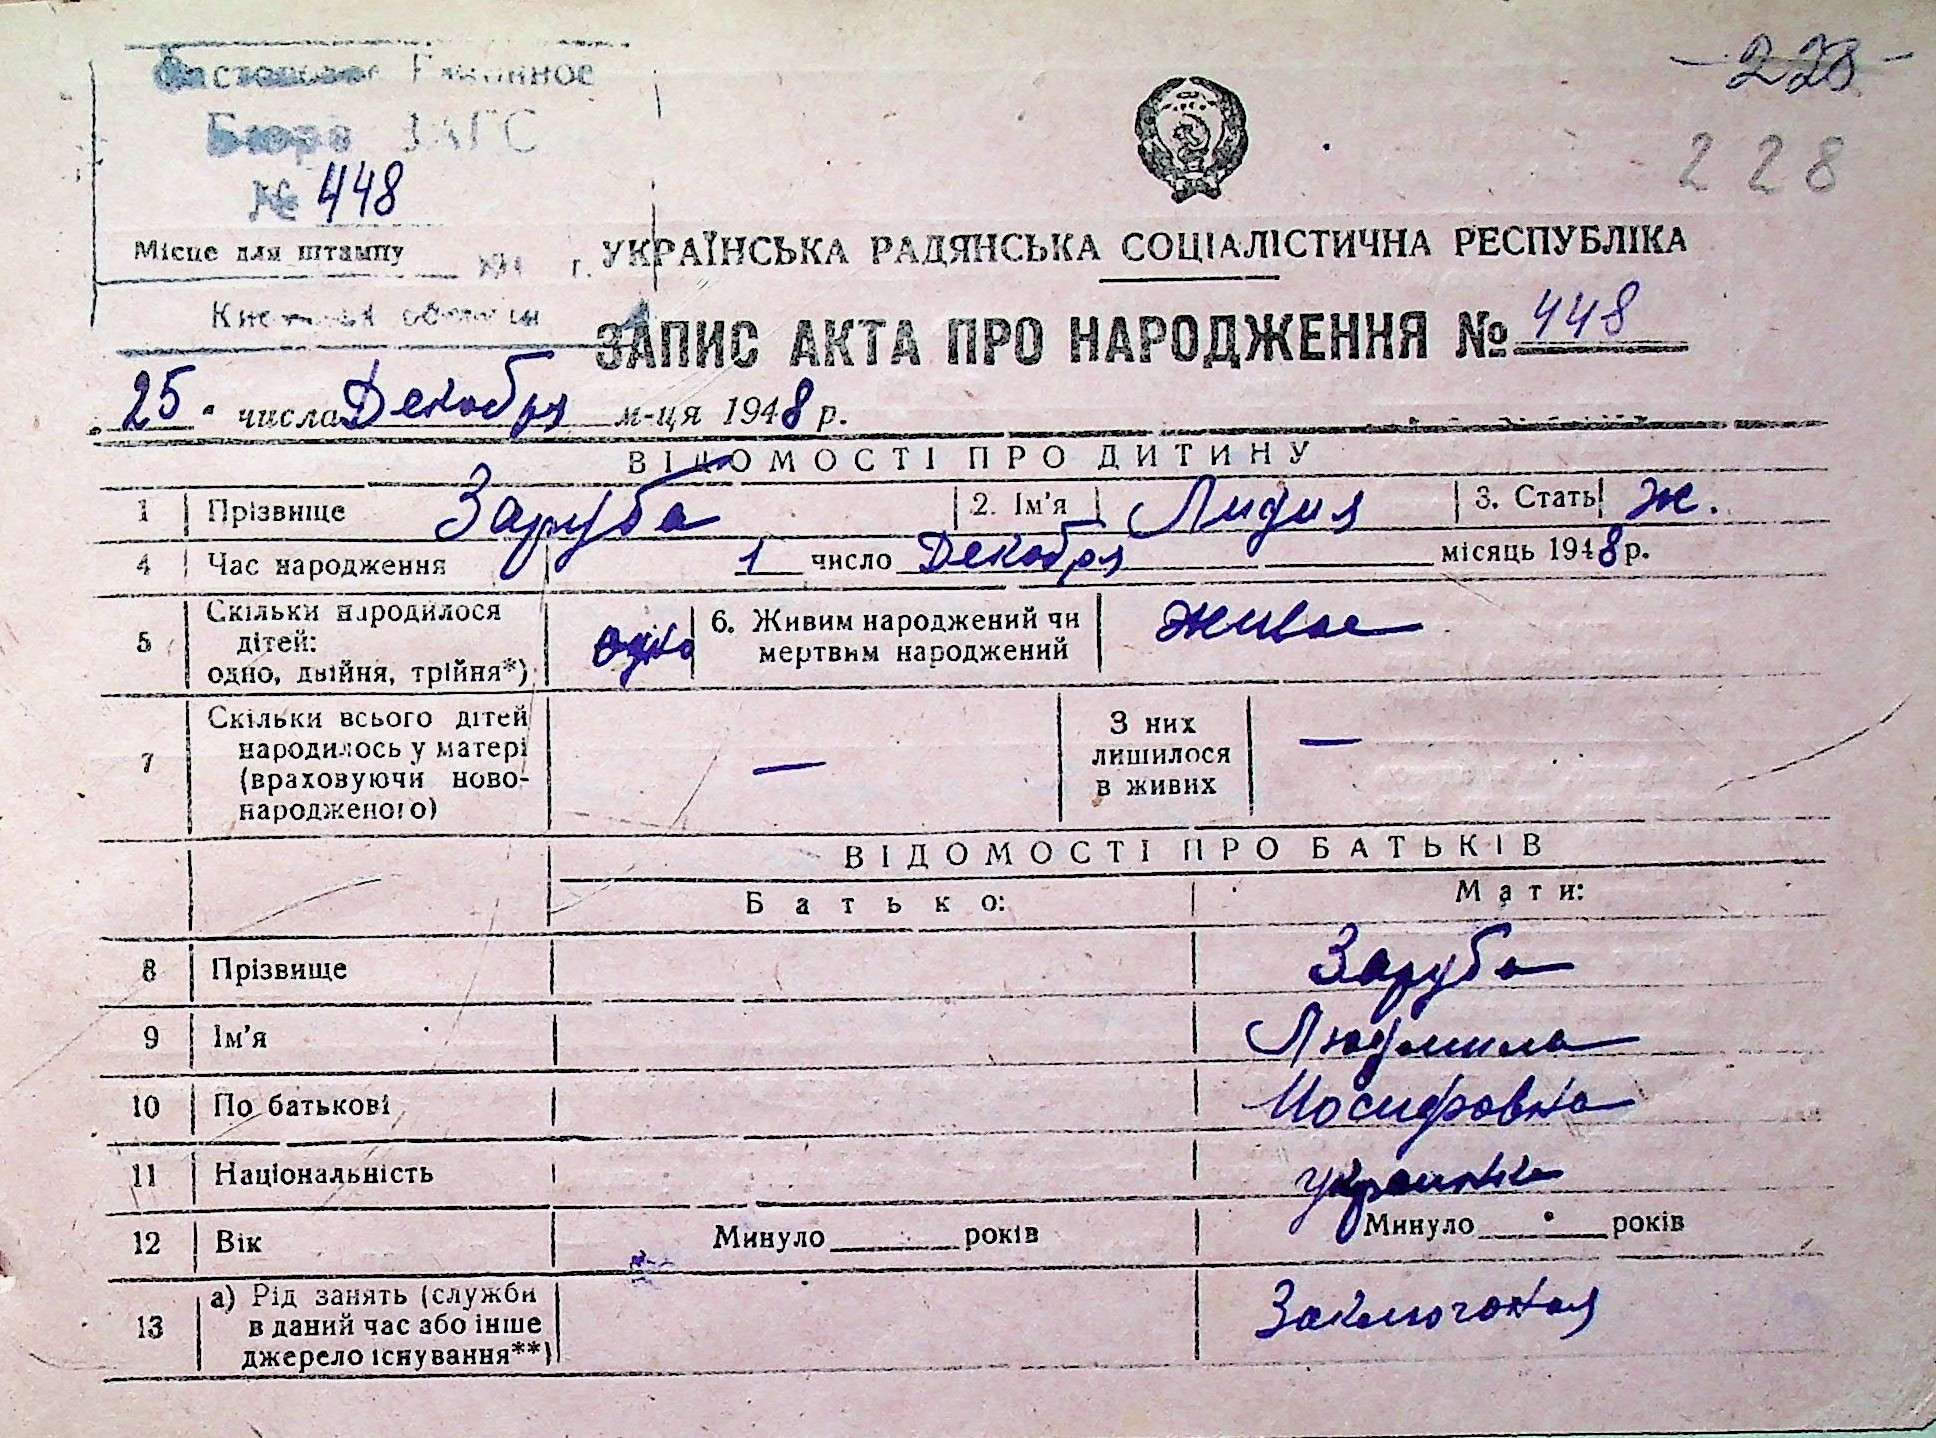 -228-
228
Бюро ЗАГС
№ 448
Місце для штампу
г.
УКРАЇНСЬКА РАДЯНСЬКА СОЦІАЛІСТИЧНА РЕСПУБЛІКА
ЗАПИС АКТА ПРО НАРОДЖЕННЯ № 448
25 числа Декабря м-ця 1948 р.
ВІДОМОСТІ ПРО ДИТИНУ
1 Прізвище Заруба 2. Ім'я Лидия 3. Стать Ж.
4 Час народження 1 число Декабря місяць 1948 р.
5 Скільки народилося дітей: одно, двійня, трійня*) одно 6. Живим народжений чи мертвим народжений живое
7 Скільки всього дітей народилось у матері (враховуючи ново-народженого) — З них лишилося в живих —
ВІДОМОСТІ ПРО БАТЬКІВ
Батько: Мати:
8 Прізвище Заруба
9 Ім'я Людмила
10 По батькові Иосифовна
11 Національність украинка
12 Вік Минуло ___ років Минуло ___ років
13 а) Рід занять (служби в даний час або інше джерело існування**) Заключоная